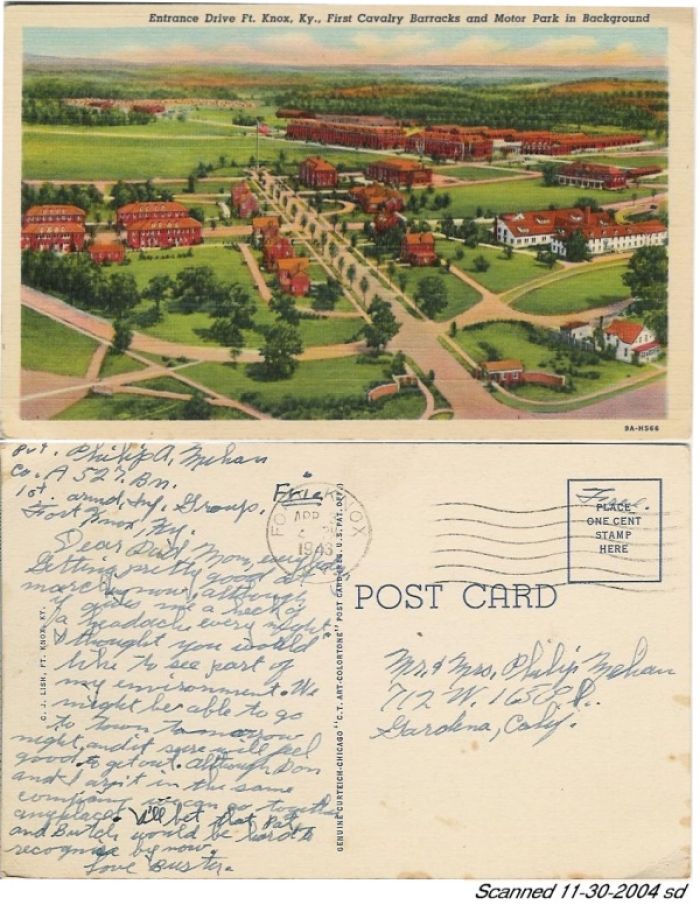 Entrance Drive Ft. Knox, Ky., First Cavalry Barracks and Motor Park in Background
9A-H566
Pvt. Philip A. Mehan
Co. A 527. Bn.
1st. armd. Inf. Group,
Fort Knox, Ky.
Frie
FORT KNOX
APR
1943
Dear Dad, Mom, everybody
Getting pretty good at
marching now, although
it gives me a heck of
a headache every night.
I thought you would
like to see part of
my environment. We
might be able to go
to town tomorrow
night, and it sure will feel
good to get out. Although Don
and I ain't in the same
company we can go together
anyplace. I'll bet that Pat
and Butch would be hard to
recognize by now.
Love Buster.
C. J. LISH, FT. KNOX, KY.
GENUINE CURTEICH-CHICAGO "C.T. ART-COLORTONE" POST CARD (REG. U.S. PAT. OFF.)
Free.
PLACE
ONE CENT
STAMP
HERE
POST CARD
Mr. & Mrs. Philip Mehan
712 W. 165
Gardena, Calif.
Scanned 11-30-2004 sd